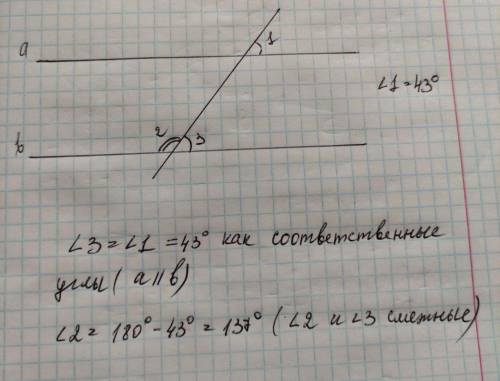 a
1
∠1=43°
b
2
3
∠3=∠1=43° как соответственные
углы (a∥b)
∠2=180°-43°=137° (∠2 и ∠3 смежные)